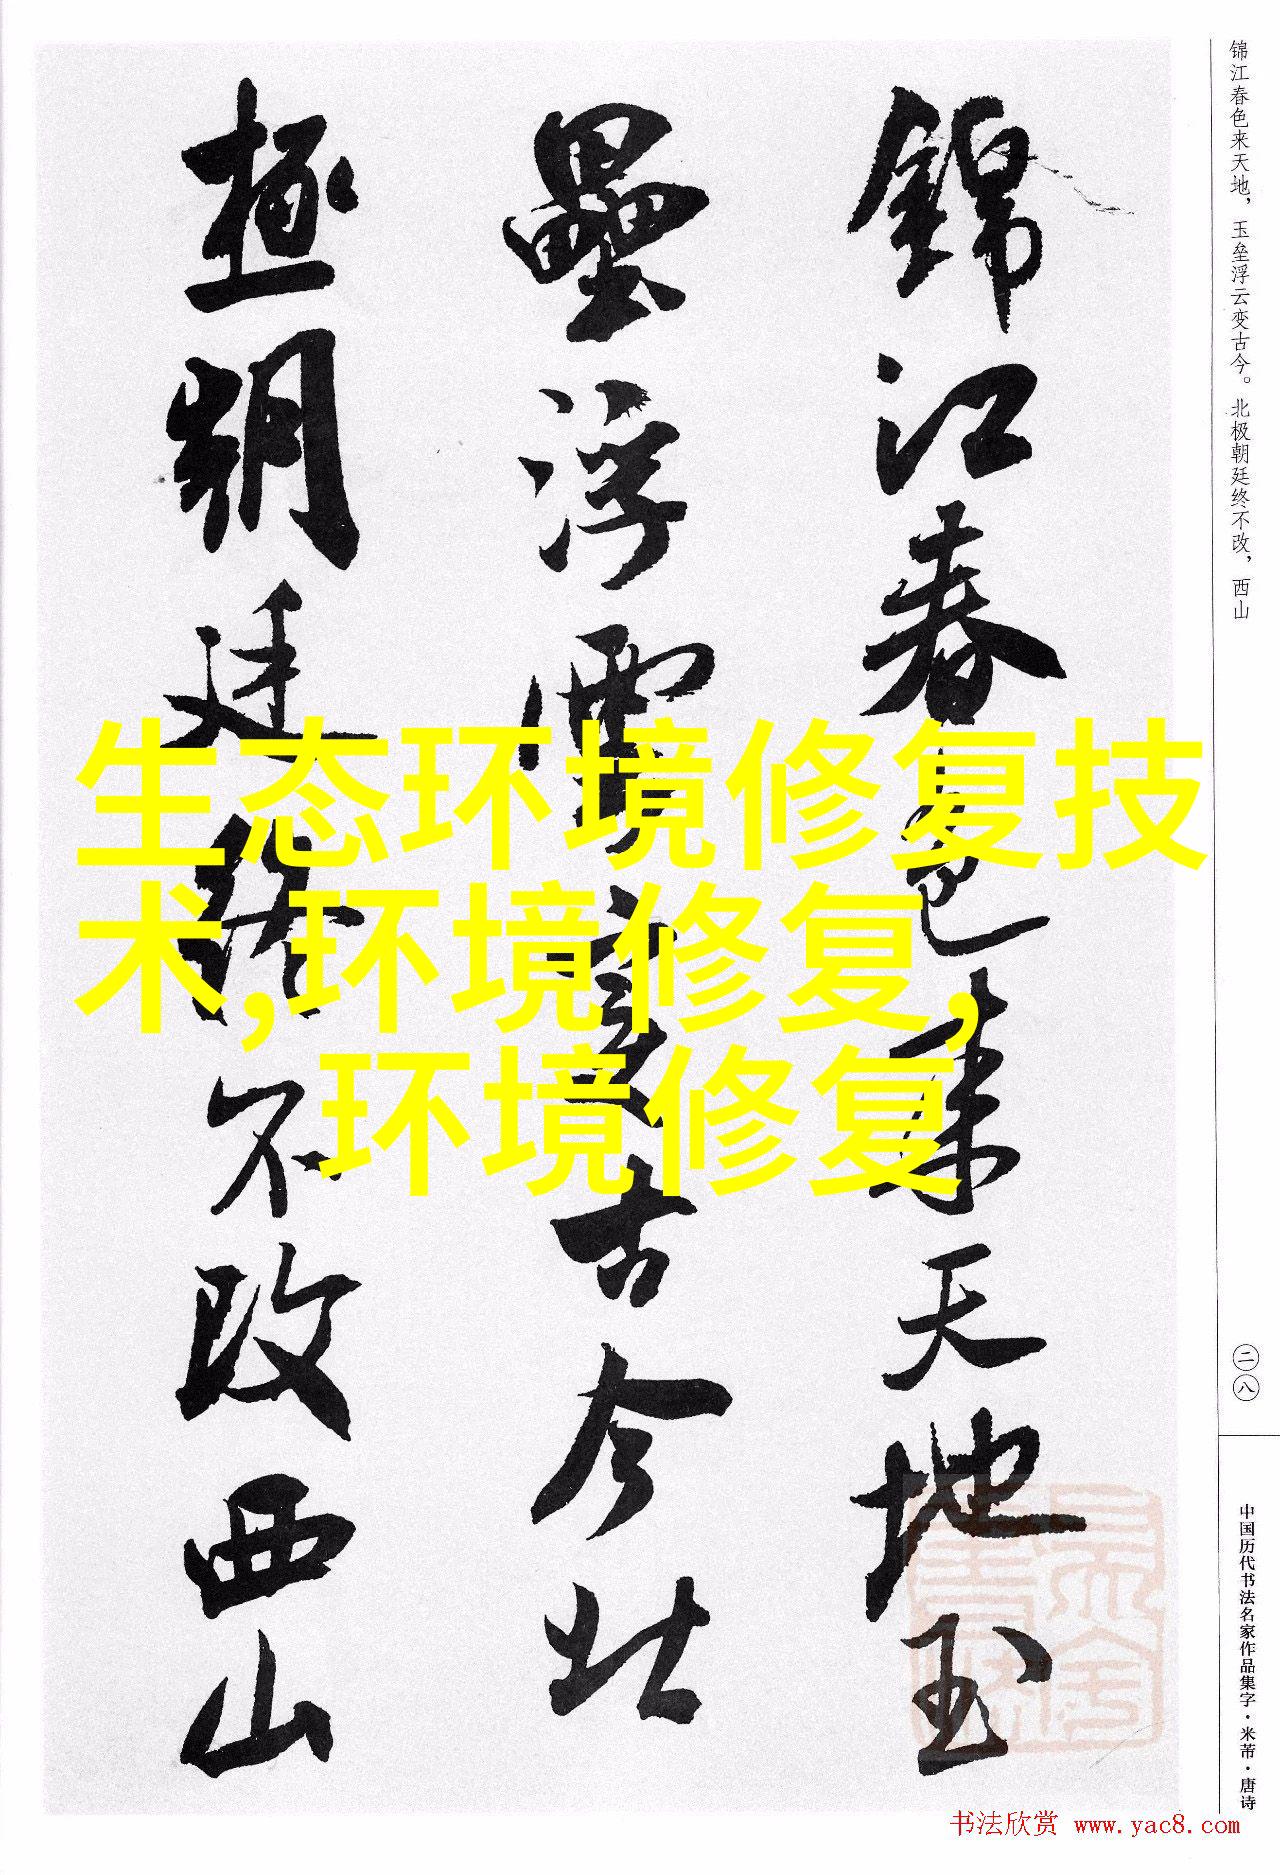 锦江春色来天地，玉垒浮云变古今。北极朝廷终不改，西山
錦江春色来天地玉
壘浮雲變古今北
極朝廷終不改西山
生态环境修复技
术,环境修复,
环境修复
二八
中国历代书法名家作品集字·米芾·唐诗
书法欣赏 www.yac8.com